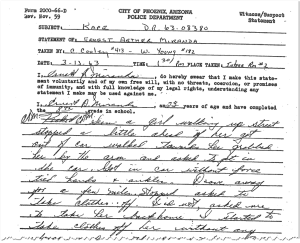 Form 2000-66-D
Rev. Nov. 59
CITY OF PHOENIX, ARIZONA
POLICE DEPARTMENT
Witness/Suspect
Statement
SUBJECT: RAPE D.R. 63-08380
STATEMENT OF: ERNEST ARTHUR MIRANDA
TAKEN BY: C. Cooley #413 - W. Young #182
DATE: 3-13-63 TIME: 1:30 PLACE TAKEN: Interr Rm #2
I, Ernest A. Miranda, do hereby swear that I make this state-
ment voluntarily and of my own free will, with no threats, coercion, or promises
of immunity, and with full knowledge of my legal rights, understanding any
statement I make may be used against me.
I, Ernest A. Miranda, am 23 years of age and have completed
the 8th grade in school.
a girl walking up street
stopped a little ahead of her got
out of car walked towards her grabbed
her by the arm and asked to get in
the car. Got in car without force
tied hands & ankles. Drove away
for a few miles. Stopped asked to
take clothes off. Did not, asked me
to take her back home. I started to
take clothes off her without any